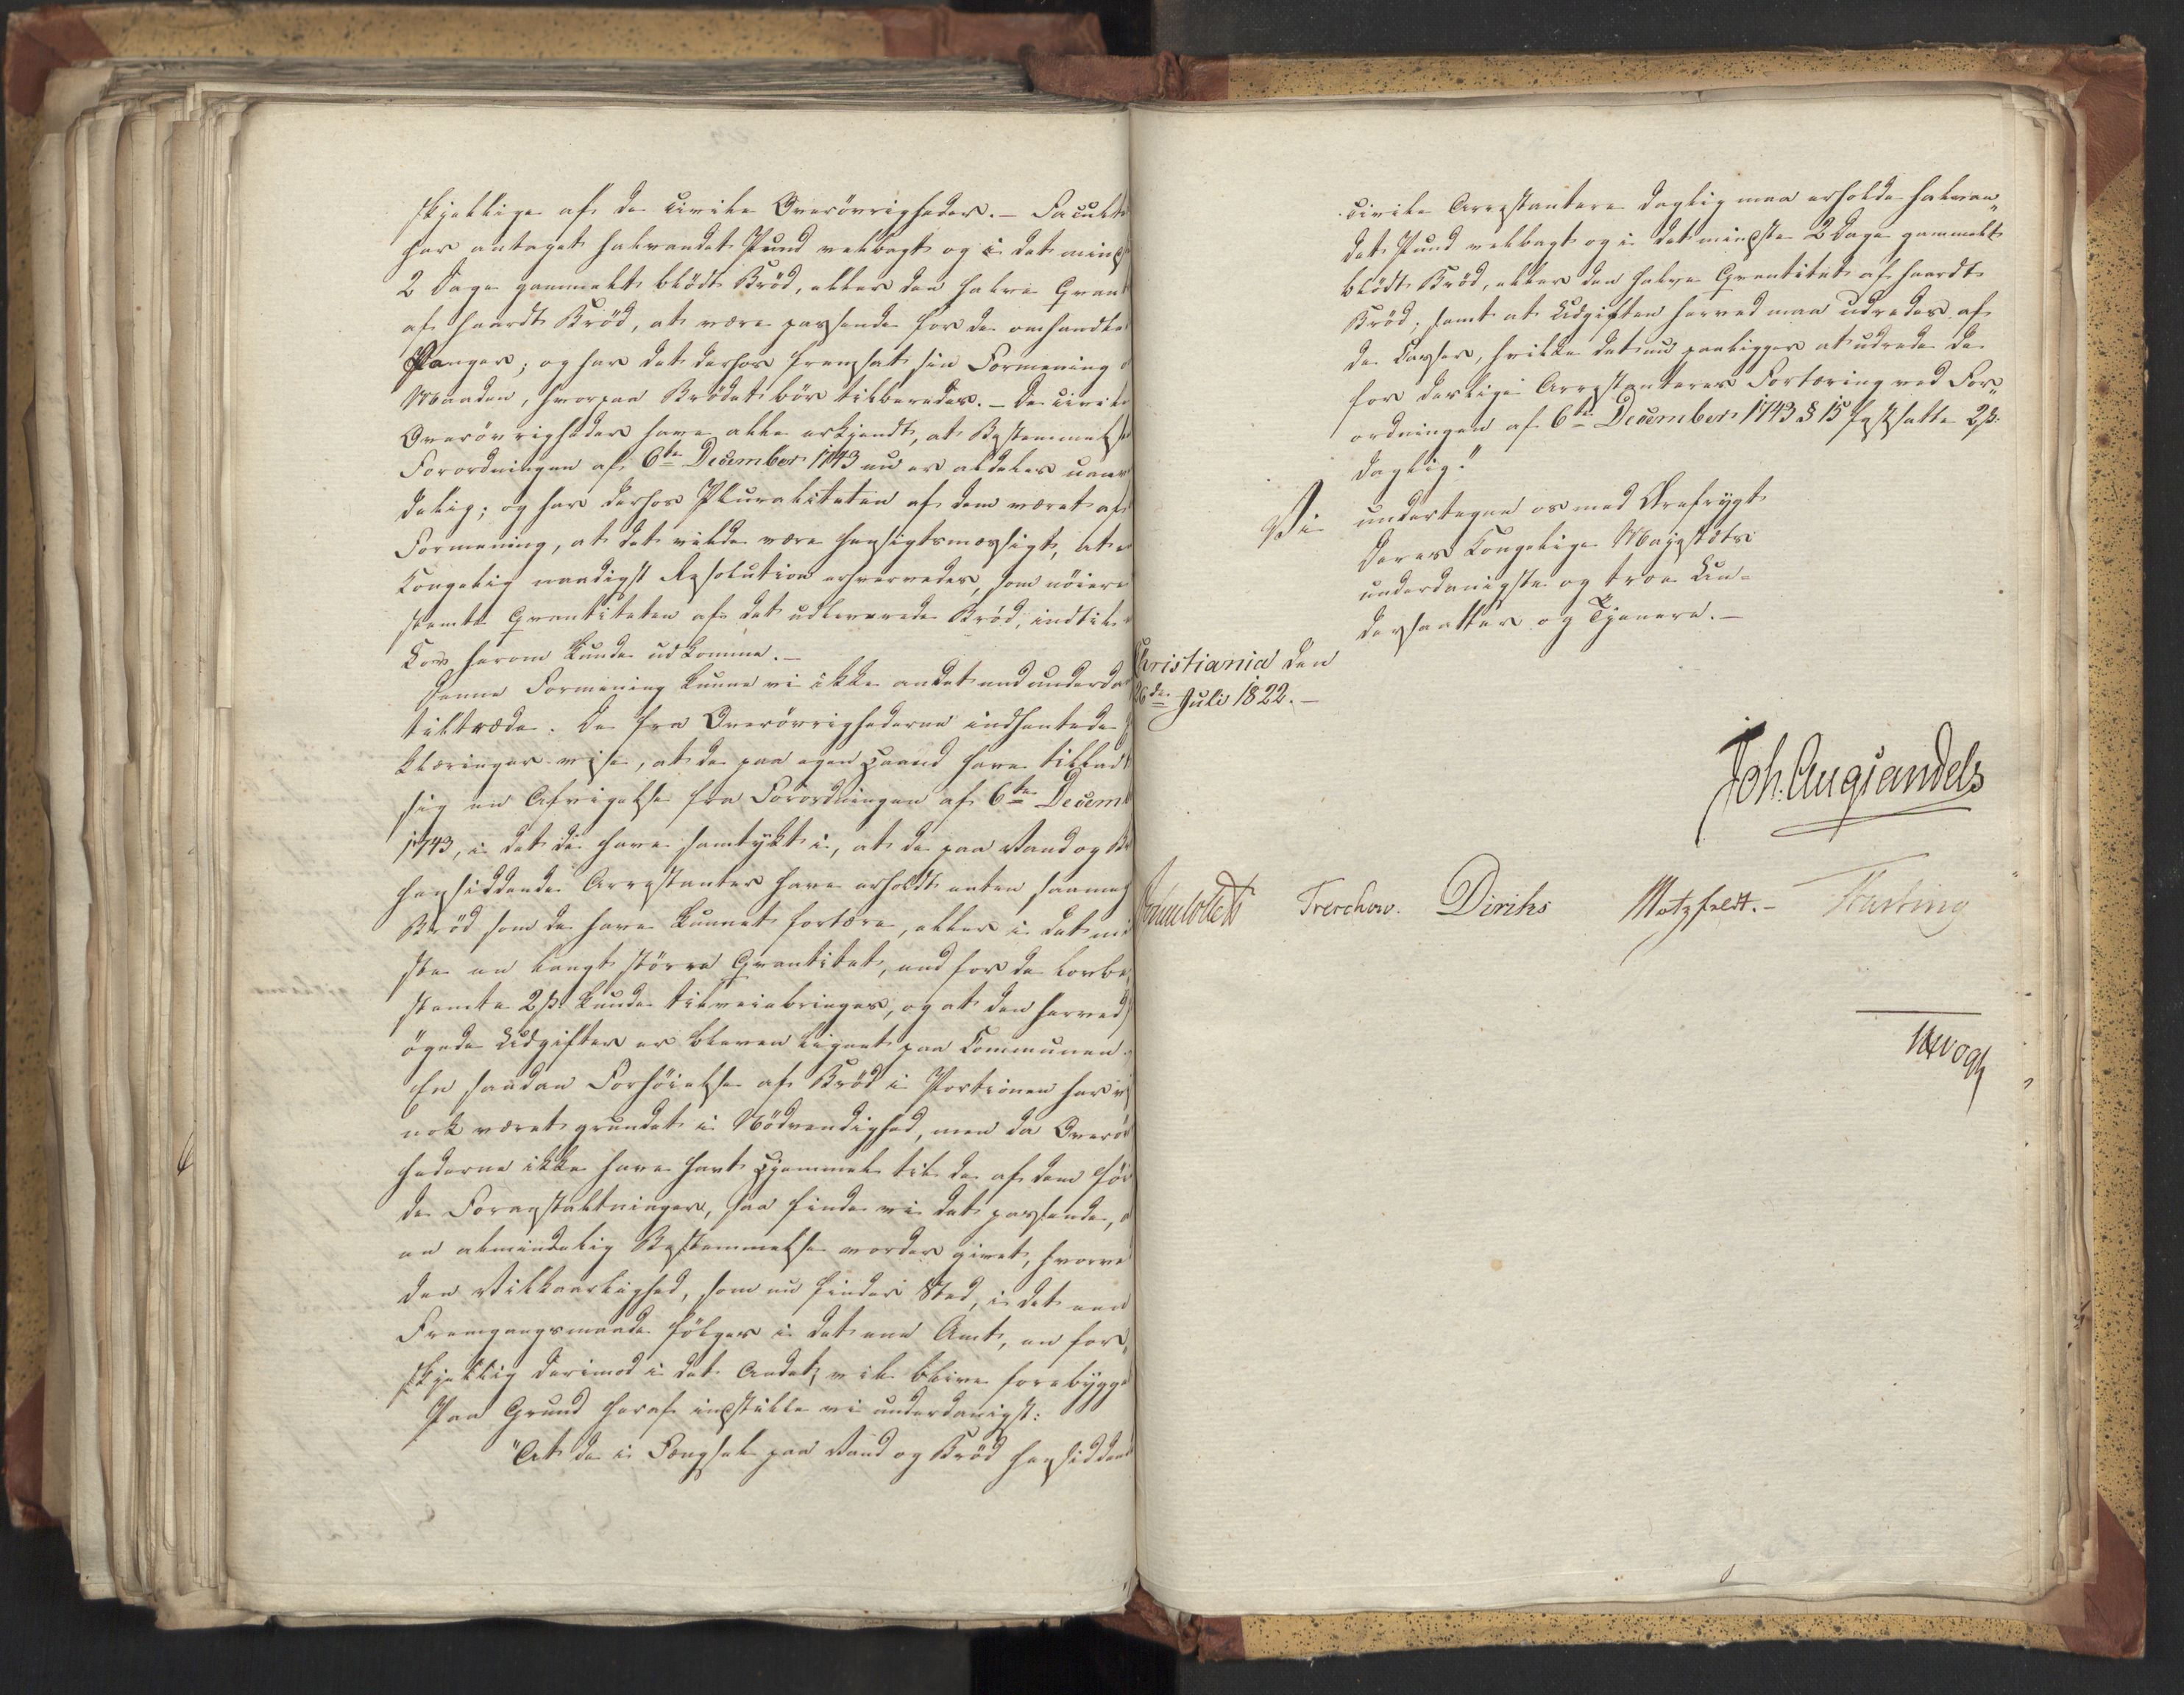 skjellige af de civile Overövrigheder. – Facult
har antaget halvandet Pund velbagt og i det minds
2 Dage gammelt blödt Bröd, eller den halve Qvant
af haardt Bröd, at være passende for de omhandle
Fanger; og har det derhos fremsat sin Formening o
Maaden, hvorpaa Brödet bör tilberedes. – De civile
Overövrigheder have alle erkjendt, at Bestemmelse
Forordningen af 6te December 1743 nu er aldeles uanv
delig; og har derhos Pluraliteten af dem været af
Formening, at det vilde være hensigtsmæssigt, at e
Kongelig naadigst Resolution erhvervedes, som nöiere
stemte Qvantiteten af det udleverede Bröd, indtil e
Lov herom kunde udkomme. –
Denne Formening kunne vi ikke andet end underda
tiltræde. De fra Overövrighederne indhentede
klæringer vise, at de paa egen Haand have tilladt
sig en Afvigelse fra Forordningen af 6te Decemb
1743, i det de have samtykt i, at de paa Vand og Br
hensiddende Arrestanter have erholdt enten saameg
Bröd som de have kunnet fortære, eller i det mi
ste en langt större Qvantitet, end for de lovbe„
stemte 2 ß kunde tilveiebringes, og at den herved
ögede Udgifter er bleven lignet paa Communen.
En saadan Forhöielse af Bröd i Portionen har vi
nok været grundet i Nödvendighed, men da Overö
hederne ikke have havt Hjemmel til de af dem föi
de Foranstaltninger, saa finde vi det passende, a
en almindelig Bestemmelse vorder givet, hvorve
den Vilkaarlighed, som nu finder Sted, i det een
Fremgangsmaade fölges i det ene Amt, en for„
skjellig derimod i det Andet, vil blive forebygge
Paa Grund heraf indstille vi underdanigst:
"At de i Fængsel paa Vand og Bröd hensiddend
civile Arrestantere daglig maa erholde halvan„
det Pund velbagt og i det mindste 2 Dage gammelt
blödt Bröd, eller den halve Qvantitet af haardt
Bröd; samt at Udgiften herved maa udredes af
de Casser, hvilke det nu paaligger at udrede de
for deslige Arrestanteres Fortæring ved For„
ordningen af 6te December 1743 § 15 fastsatte 2 ß.
daglig."
Vi undertegne os med Ærefrygt
Deres Kongelige Majestæts
underdanigste og troe Un-
dersaatter og Tjenere. –
Christiania den
26de Juli 1822. –
Joh. Aug Sandels
Sommelfeldt Treschow. Diriks Motzfeldt. – Fasting
Vogt